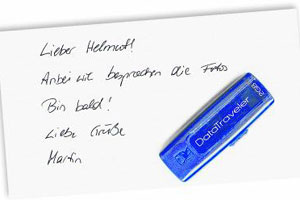 Lieber Helmut!
Anbei wie besprochen die Fotos
Bis bald!
Liebe Grüße
Martin
DataTraveler